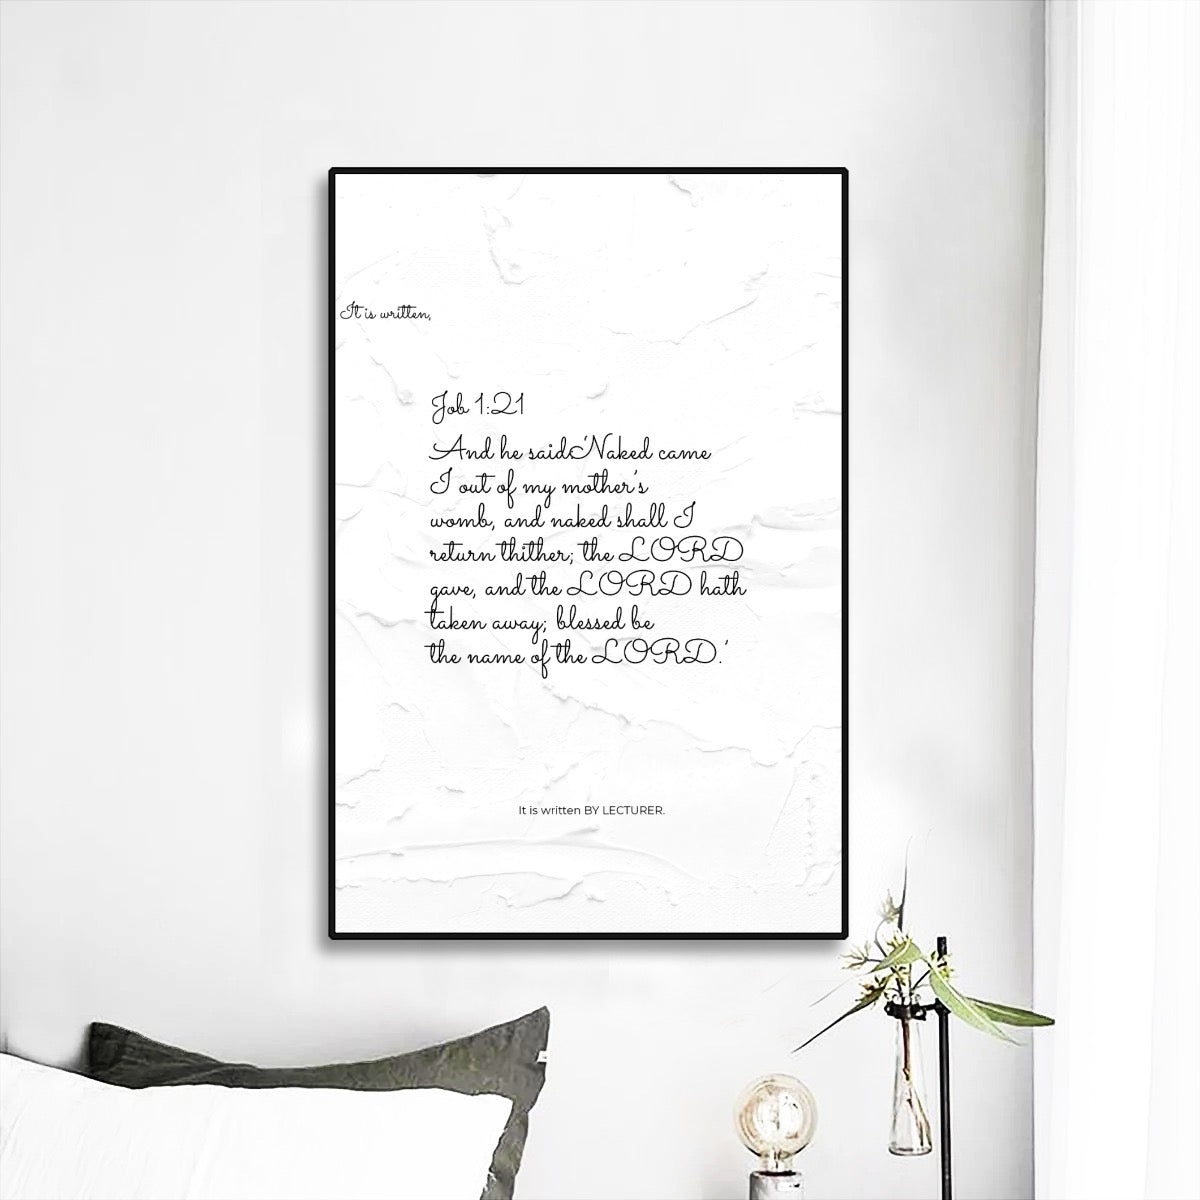 It is written,
Job 1:21
And he said,'Naked came
I out of my mother's
womb, and naked shall I
return thither; the LORD
gave, and the LORD hath
taken away; blessed be
the name of the LORD.'
It is written BY LECTURER.